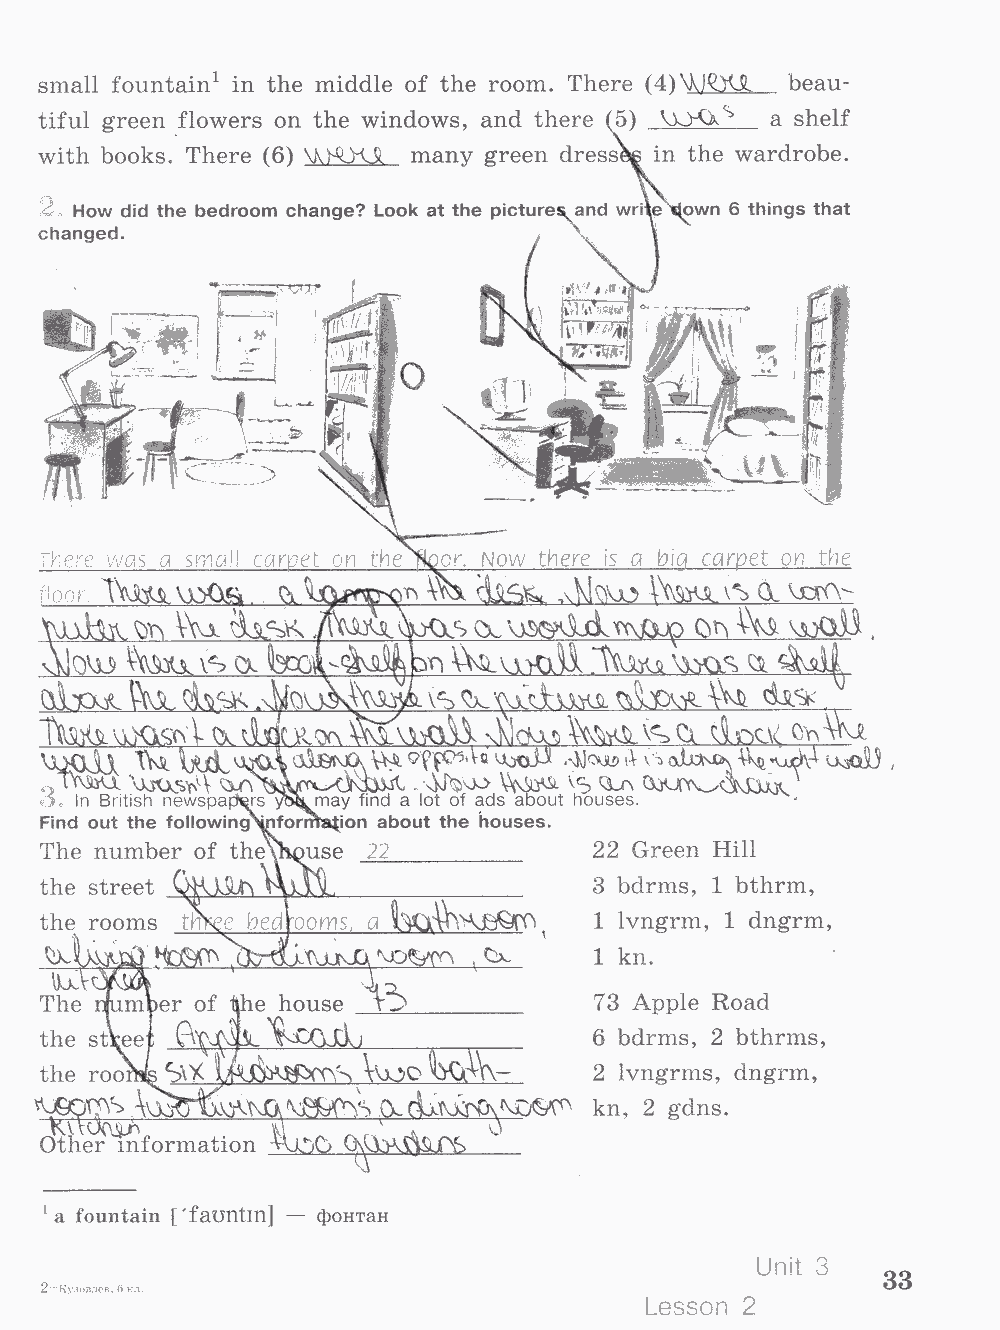 small fountain¹ in the middle of the room. There (4) were beau-
tiful green flowers on the windows, and there (5) was a shelf
with books. There (6) were many green dresses in the wardrobe.
2. How did the bedroom change? Look at the pictures and write down 6 things that
changed.
There was a small carpet on the floor. Now there is a big carpet on the
floor. There was a lamp on the desk. Now there is a com-
puter on the desk. There was a world map on the wall.
Now there is a book-shelf on the wall. There was a shelf
above the desk. Now there is a picture above the desk.
There wasn't a clock on the wall. Now there is a clock on the
wall. The bed was along the opposite wall. Now it is along the right wall.
There wasn't an arm-chair. Now there is an arm chair.
3. In British newspapers you may find a lot of ads about houses.
Find out the following information about the houses.
The number of the house 22
22 Green Hill
the street Green Hill
3 bdrms, 1 bthrm,
the rooms three bedrooms, a bathroom,
1 lvngrm, 1 dngrm,
a living room, a dining room, a
1 kn.
kitchen
The number of the house 73
73 Apple Road
the street Apple Road
6 bdrms, 2 bthrms,
the rooms six bedrooms two bath-
2 lvngrms, dngrm,
rooms two living rooms, a dining room
kn, 2 gdns.
kitchen
Other information two gardens
¹ a fountain [ˈfaʊntɪn] — фонтан
Unit 3
33
2—Кузовлев, 6 кл.
Lesson 2